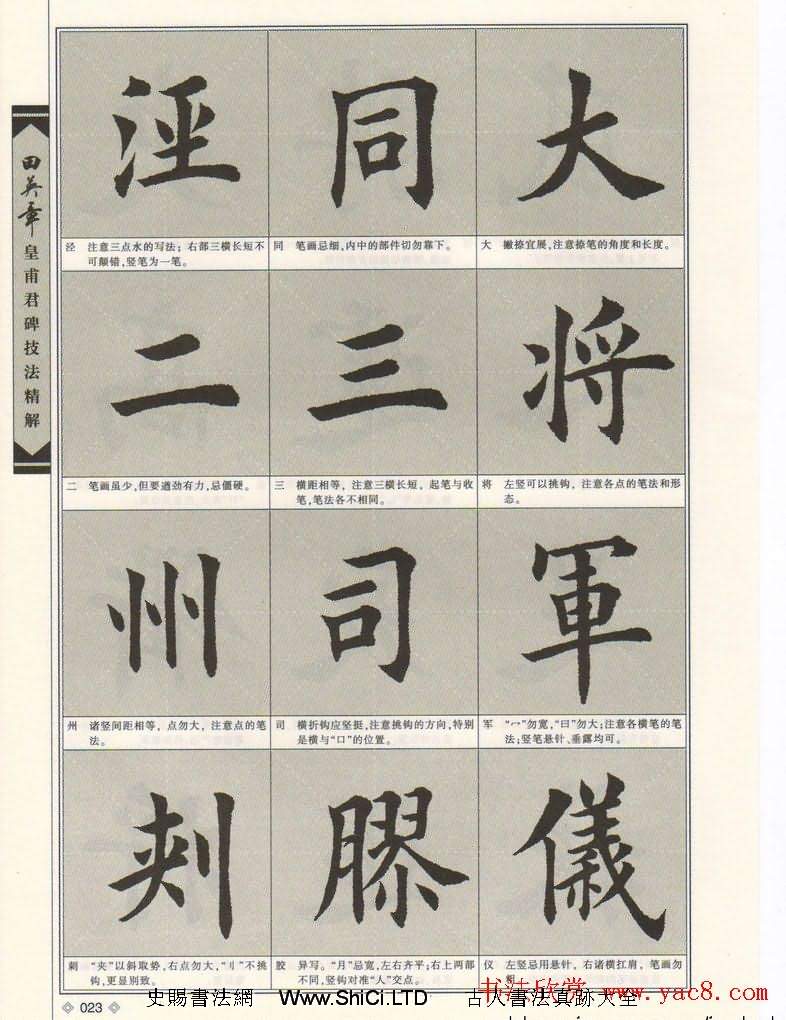 田英章
皇甫君碑技法精解
大
同
泾
大 撇捺宜展，注意捺笔的角度和长度。
同 笔画忌细，内中的部件切勿靠下。
泾 注意三点水的写法；右部三横长短不
可颠错，竖笔为一笔。
将
三
二
将 左竖可以挑钩，注意各点的笔法和形
态。
三 横距相等，注意三横长短，起笔与收
笔，笔法各不相同。
二 笔画虽少，但要遒劲有力，忌僵硬。
軍
司
州
军 “冖”勿宽，“日”勿大；注意各横笔的笔
法；竖笔悬针、垂露均可。
司 横折钩应竖挺，注意挑钩的方向，特别
是横与“口”的位置。
州 诸竖间距相等，点勿大，注意点的笔
法。
儀
膠
刺
仪 左竖忌用悬针，右诸横扛肩，笔画勿
粗
胶 异写。“月”忌宽，左右齐平；右上两部
不同，竖钩对准“人”交点。
刺 “夹”以斜取势，右点勿大，“刂”不挑
钩，更显别致。
023
史賜書法網 Www.ShiCi.LTD 古人書法真跡大全
书法欣赏 www.yac8.com